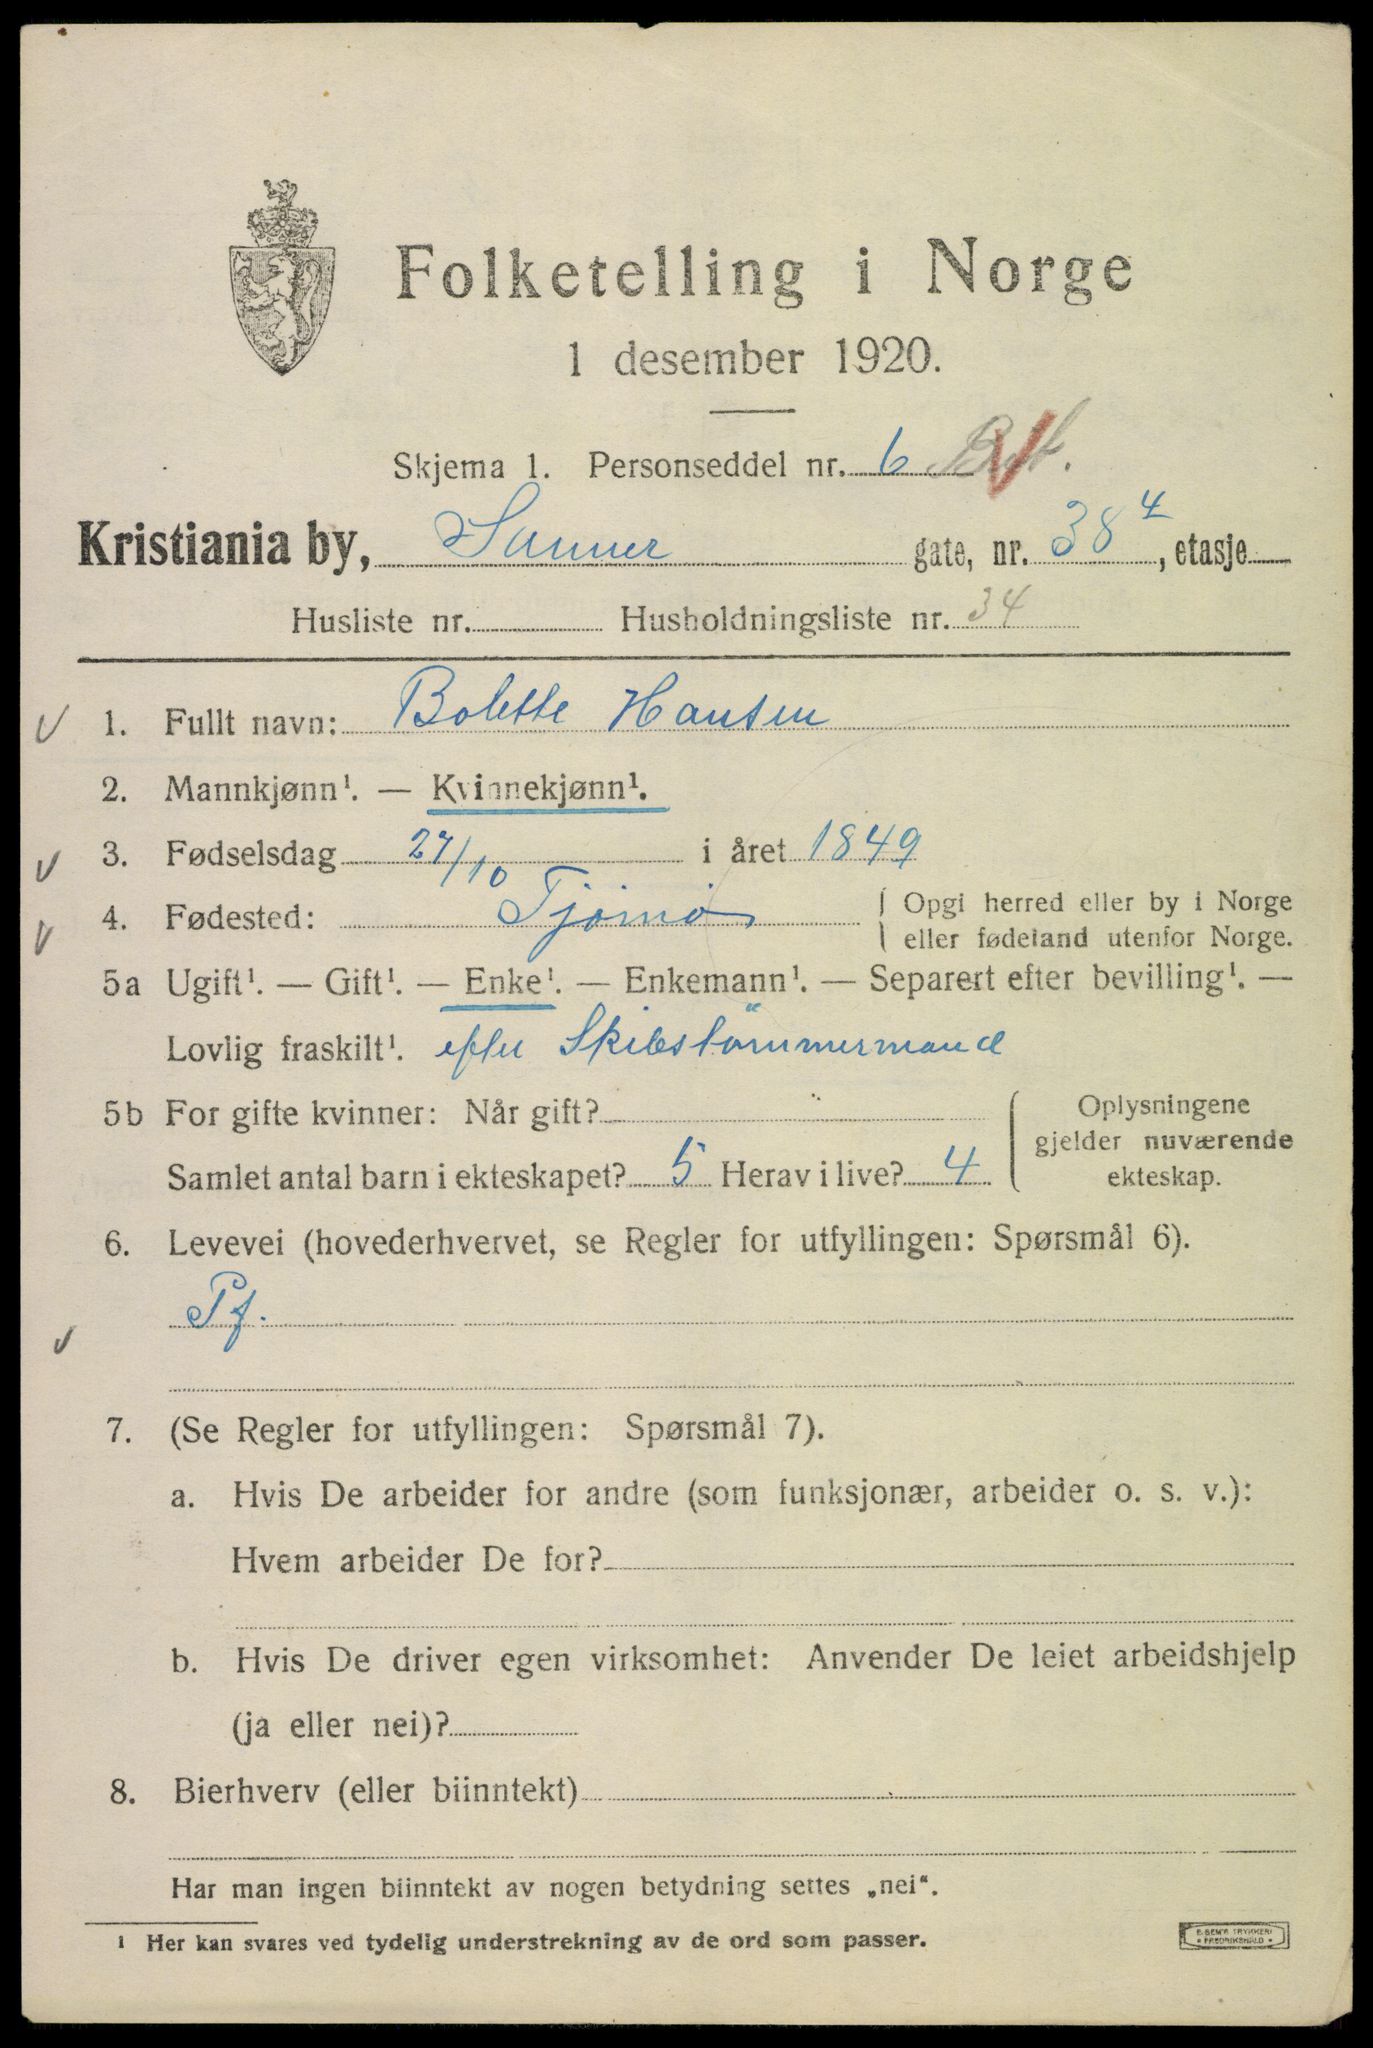 Folketelling i Norge
1 desember 1920.
Skjema 1. Personseddel nr. 6
Kristiania by, Sanner gate, nr. 38 4, etasje
Husliste nr. Husholdningsliste nr. 34
1. Fullt navn: Bolette Hansen
2. Mannkjønn¹. — Kvinnekjønn¹.
3. Fødselsdag 27/10 i året 1849
4. Fødested: Tjømø { Opgi herred eller by i Norge
eller fødeland utenfor Norge.
5a Ugift¹. — Gift¹. — Enke¹. — Enkemann¹. — Separert efter bevilling¹. —
Lovlig fraskilt¹. efter Skibstömmermand
5b For gifte kvinner: Når gift?
Samlet antal barn i ekteskapet? 5 Herav i live? 4
Oplysningene
gjelder nuværende
ekteskap.
6. Levevei (hovederhvervet, se Regler for utfyllingen: Spørsmål 6).
Pf.
7. (Se Regler for utfyllingen: Spørsmål 7).
a. Hvis De arbeider for andre (som funksjonær, arbeider o. s. v.):
Hvem arbeider De for?
b. Hvis De driver egen virksomhet: Anvender De leiet arbeidshjelp
(ja eller nei)?
8. Bierhverv (eller biinntekt)
Har man ingen biinntekt av nogen betydning settes „nei“.
¹ Her kan svares ved tydelig understrekning av de ord som passer.
E. SEM'S TRYKKERI
FREDRIKSHALD